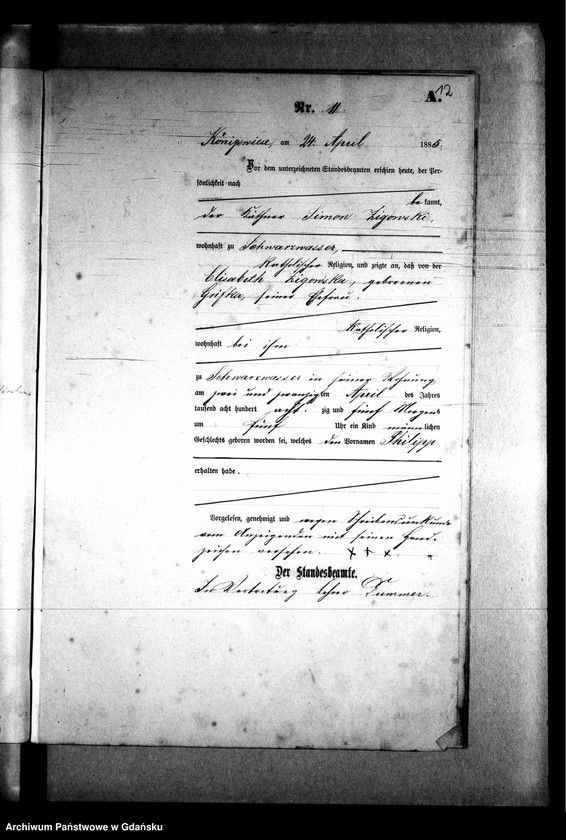 A. 12
Nr. 11.
Königswiese, am 24. April 1885.
Vor dem unterzeichneten Standesbeamten erschien heute, der Per-
sönlichkeit nach
be kannt,
der Käthner Simon Zigowski,
wohnhaft zu Schwarzwasser,
katholischer Religion, und zeigte an, daß von der
Elisabeth Zigowska, geborenen
seiner Ehefrau,
katholischer Religion,
wohnhaft bei ihm
zu Schwarzwasser in seiner Wohnung
am zwei und zwanzigsten April des Jahres
tausend acht hundert acht zig und fünf Morgens
um fünf Uhr ein Kind männlichen
Geschlechts geboren worden sei, welches den Vornamen Philipp
erhalten habe.
Vorgelesen, genehmigt und wegen Schreibensunkunde
vom Anzeigenden mit seinen Hand-
zeichen versehen. X X X.
Der Standesbeamte.
In Vertretung Dummer.
Archiwum Państwowe w Gdańsku